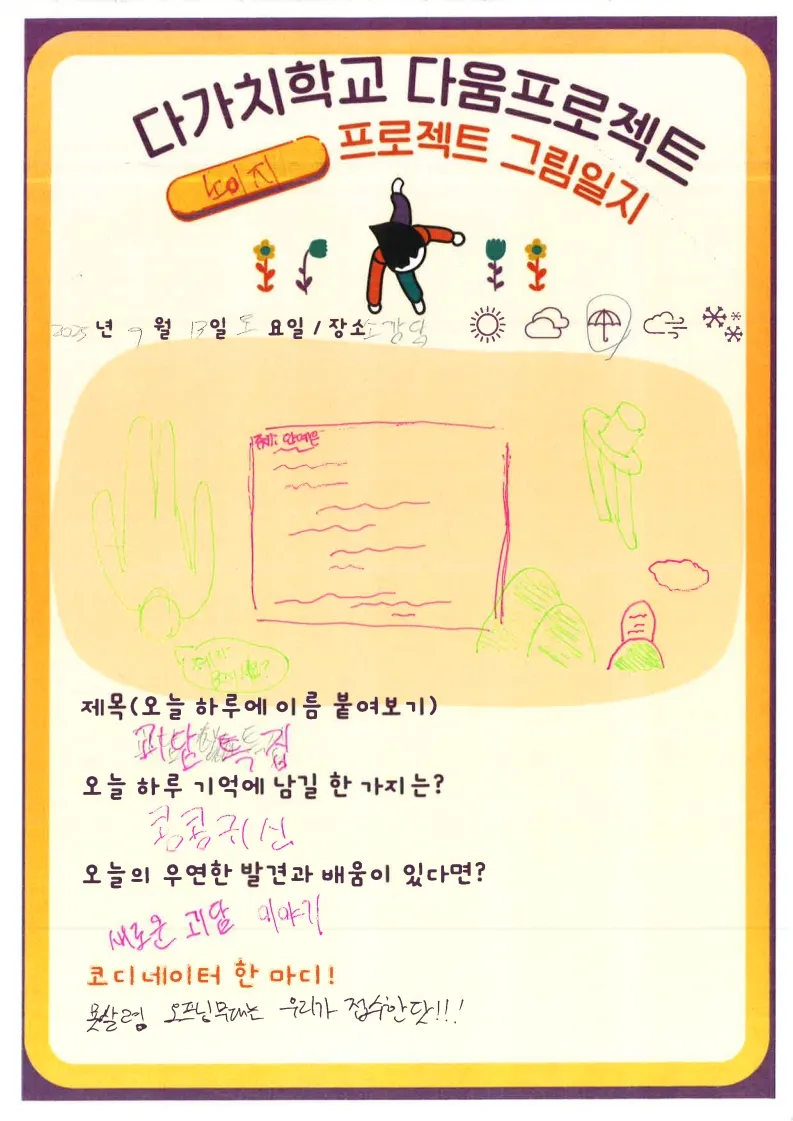 다가치학교 다움프로젝트
프로젝트 그림일지
2025 년 9 월 13 일 토 요일 / 장소 소강당
주제:
제가
제목(오늘 하루에 이름 붙여보기)
괴담 특집
오늘 하루 기억에 남길 한 가지는?
콩콩귀신
오늘의 우연한 발견과 배움이 있다면?
새로운 괴담 이야기
코디네이터 한 마디!
오프닝무대는 우리가 접수한닷!!!